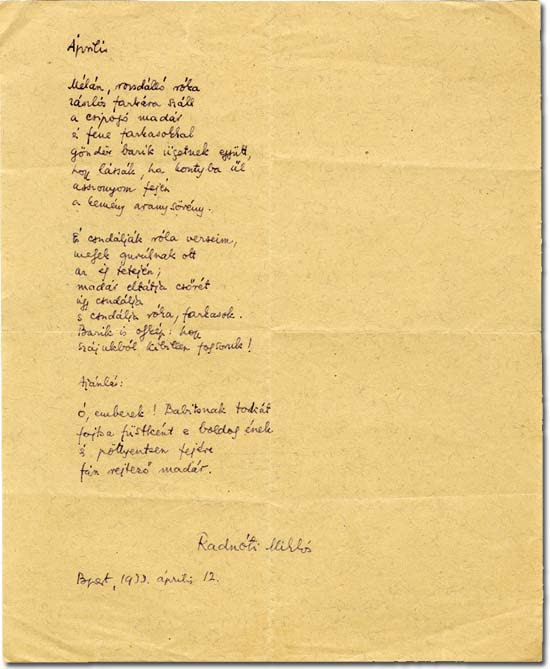 Április
Mélán, rozsdálló róka
zászlós farkára száll
a csipogó madár
s fene farkasokkal
göndör barik ügetnek együtt,
hogy lássák, ha kontyba ül
asszonyom fején
a kemény aranysövény.
És csudálják róla verseim,
melyek gurúlnak ott
az ég tetején;
madár eltátja csőrét
úgy csudálja
s csudálja róka, farkasok.
Barik is hogy
szájukból fogsoruk!
Ajánlás:
Ó, emberek! Babitsnak torkát
fojtsa füstként e boldog ének
s pöttyentsen fejére
tán rejtező madár.
Radnóti Miklós
Bpest, 1933. április 12.